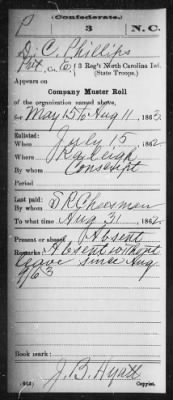 (Confederate.)
P 3 N. C.
D. C. Phillips
Pvt, Co. E, 3 Reg't North Carolina Inf.
(State Troops.)
Appears on
Company Muster Roll
of the organization named above,
for May 15 to Aug 11, 1863.
Enlisted:
When July 15, 1862
Where Raleigh
By whom Conscript
Period
Last paid:
By whom S R Chesman
To what time Aug 31, 1862.
Present or absent Absent
Remarks: Absent without
leave since Aug
1/63
Book mark:
J. B. Hyatt
(642) Copyist.